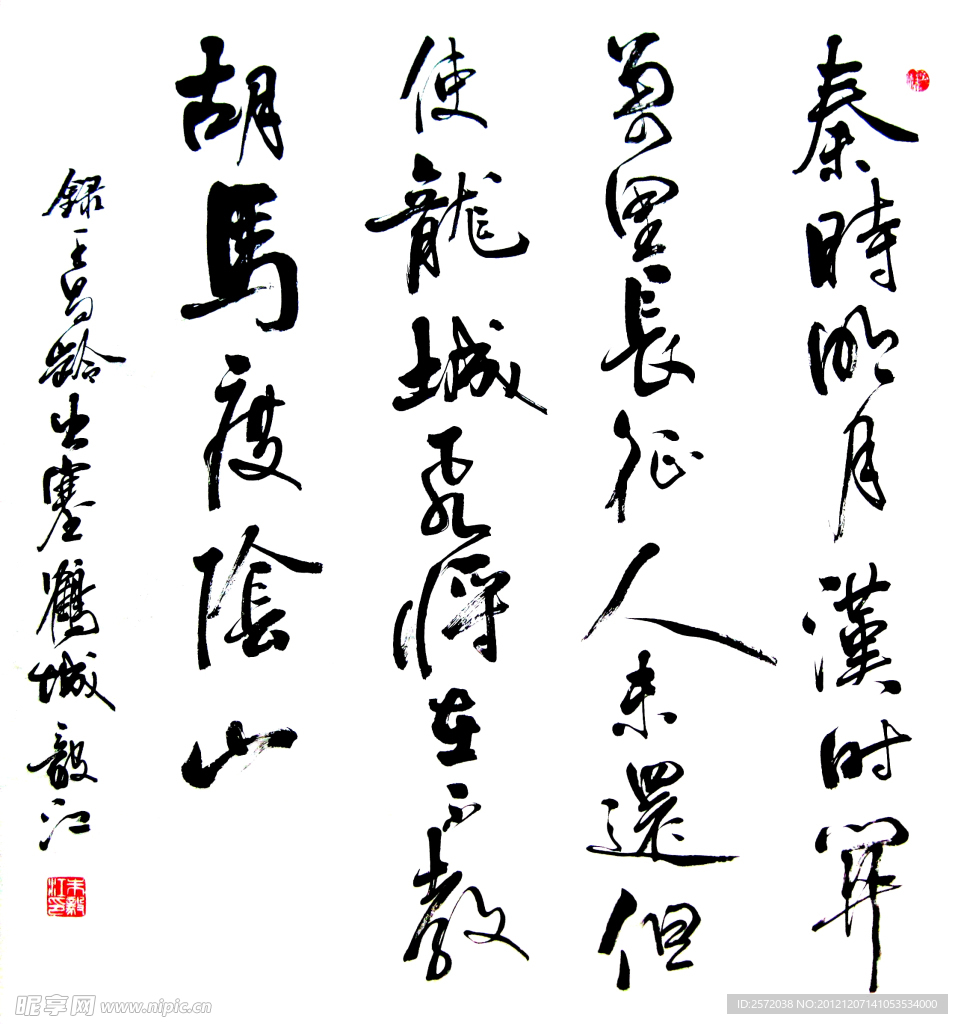 秦時明月漢时關
萬里長征人未還但
使龍城飛將在不教
胡馬度陰山
録王昌齡出塞鶴城毅江
朱毅江印
昵享网 www.nipic.cn
ID:2572038 NO:20121207141053534000